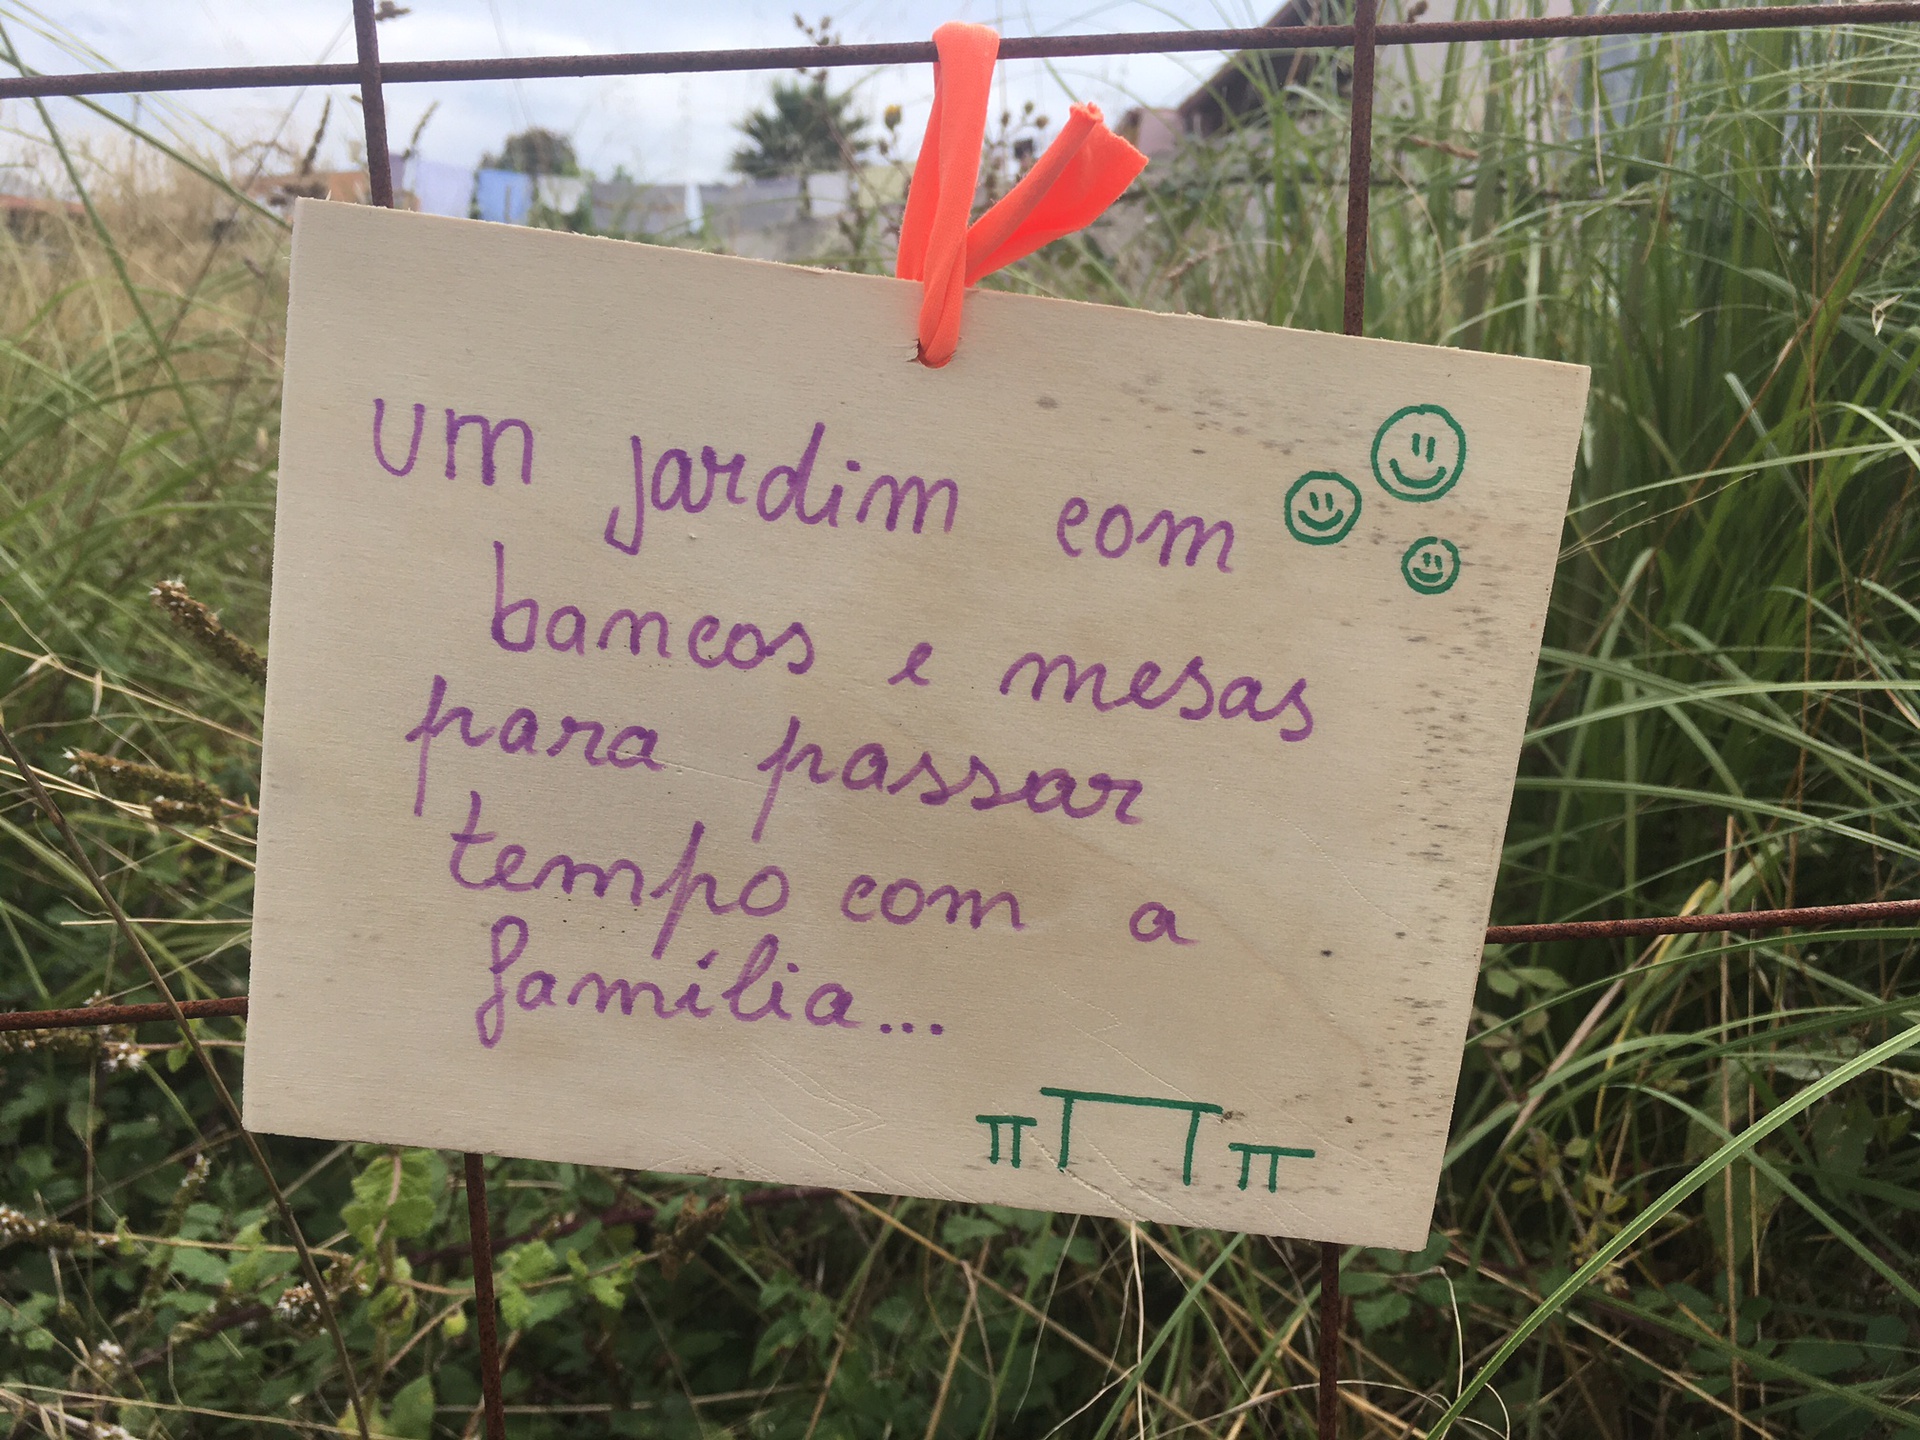 um jardim com
bancos e mesas
para passar
tempo com a
família...